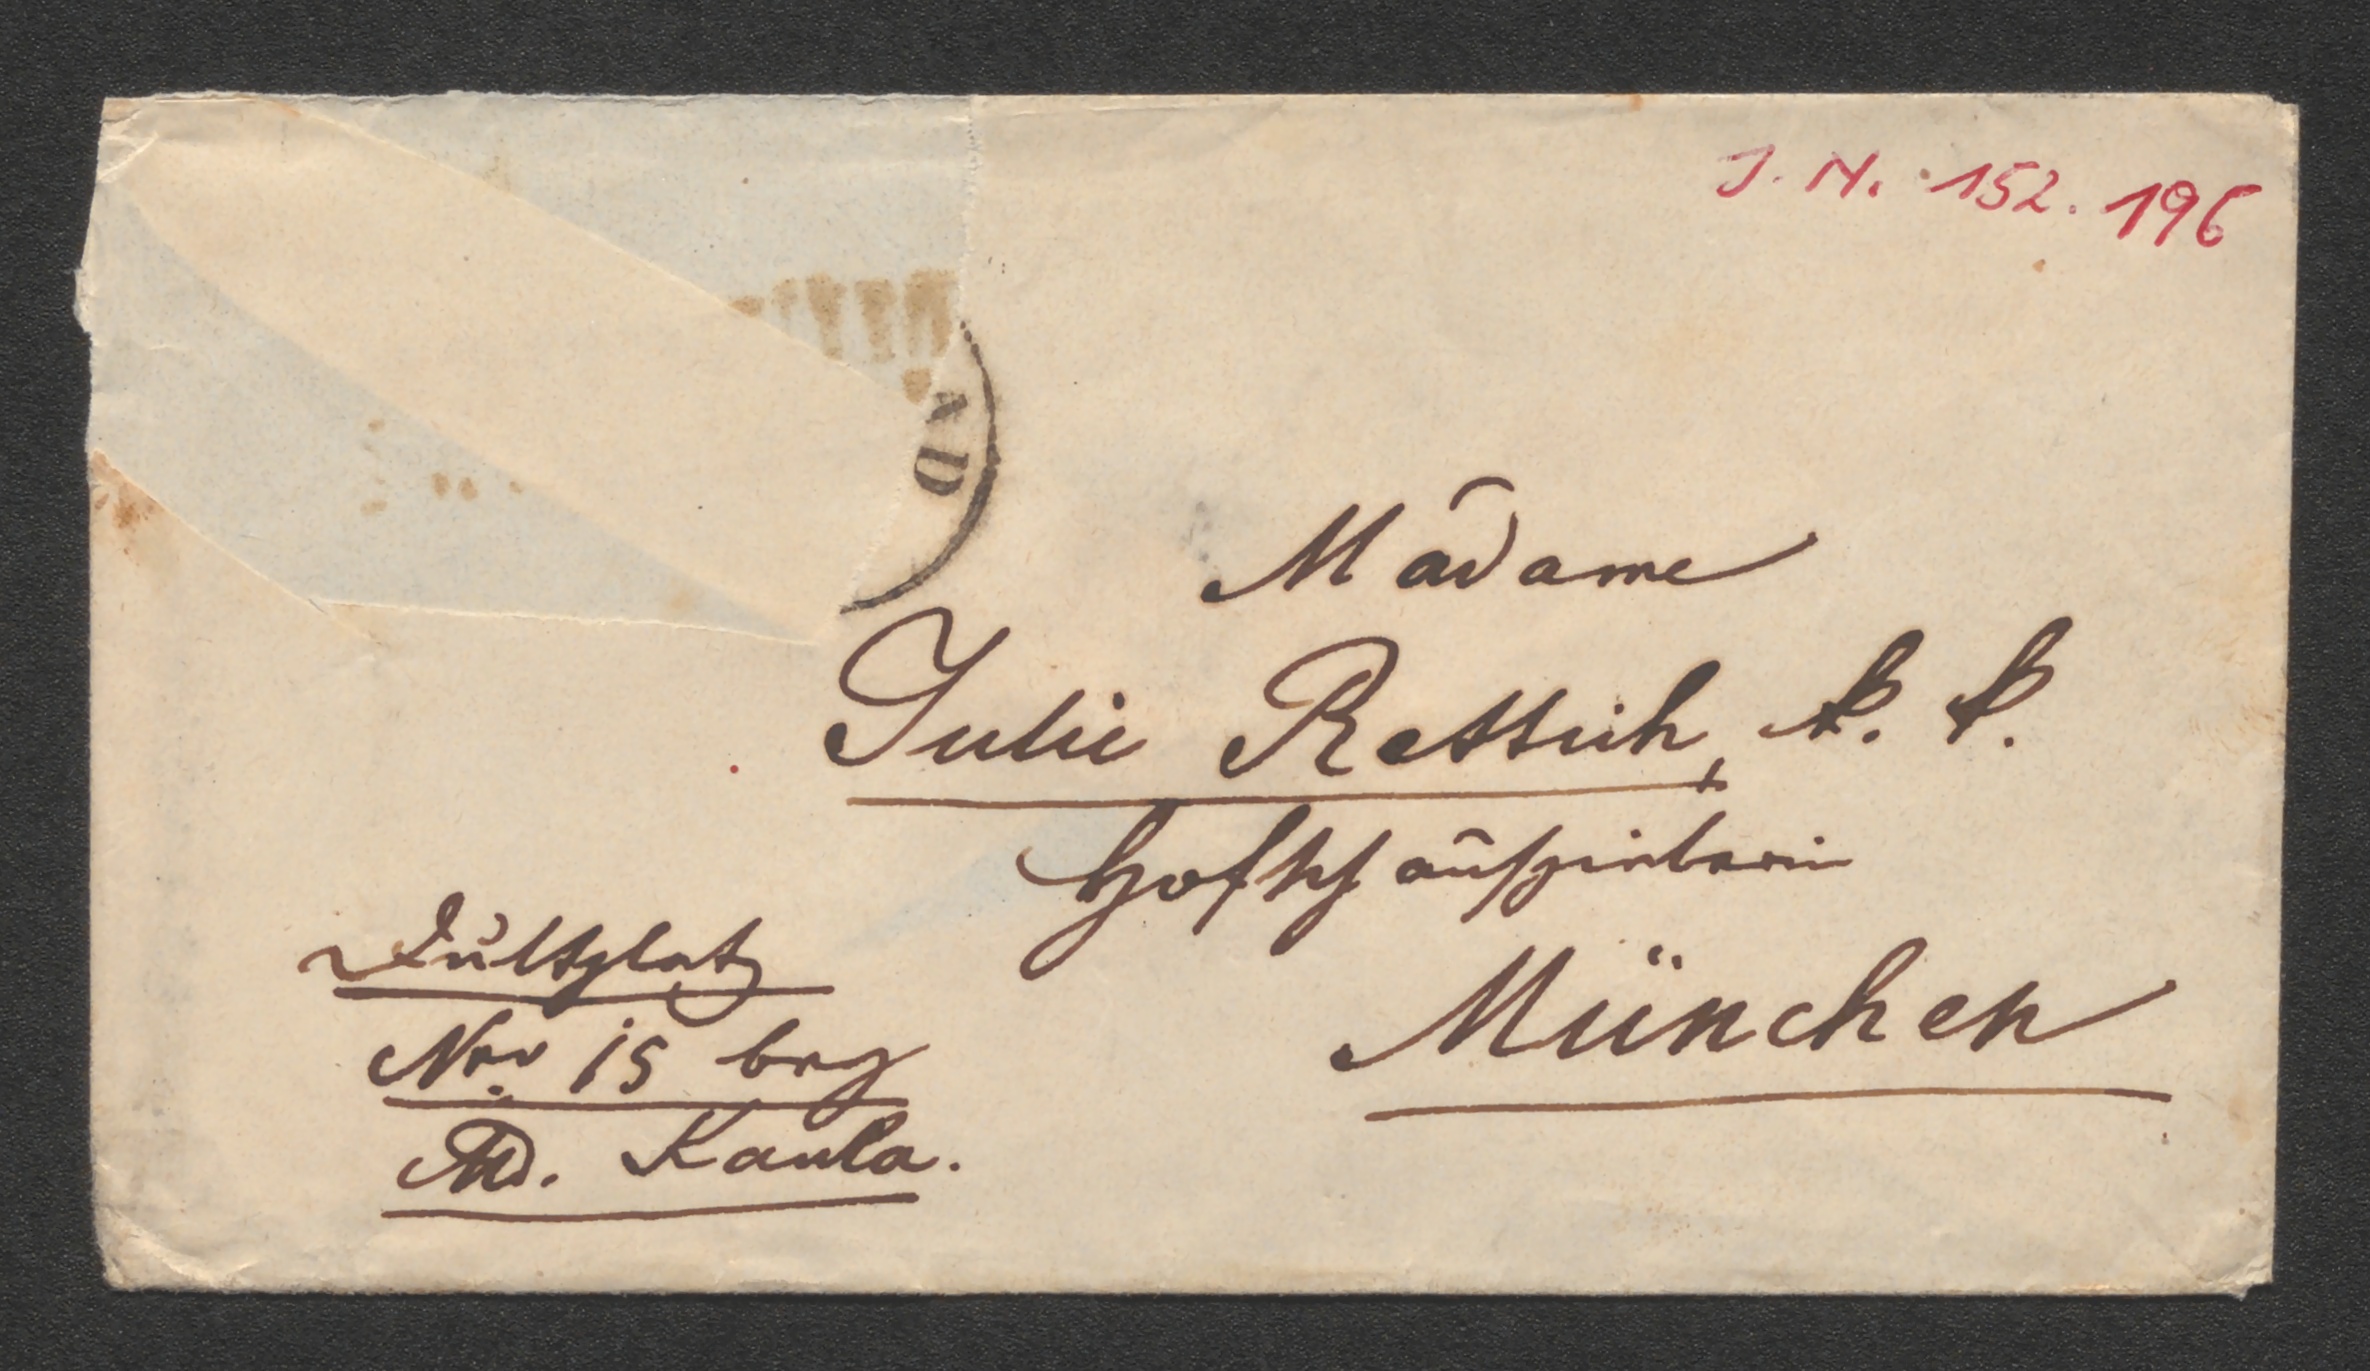 J. N. 152.196
D
Madame
Julie Rettich, k. k.
Hofschauspielerin
München
Dultplatz
Nro 15 bey
Md. Kaula.